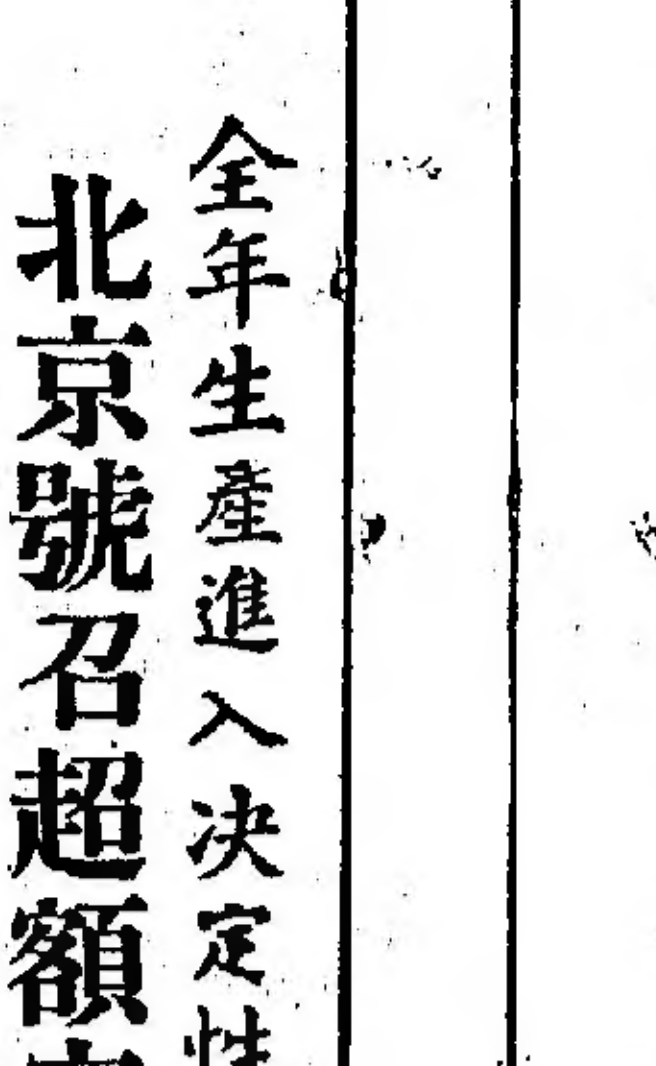 全年生產進入決定性
北京號召超額